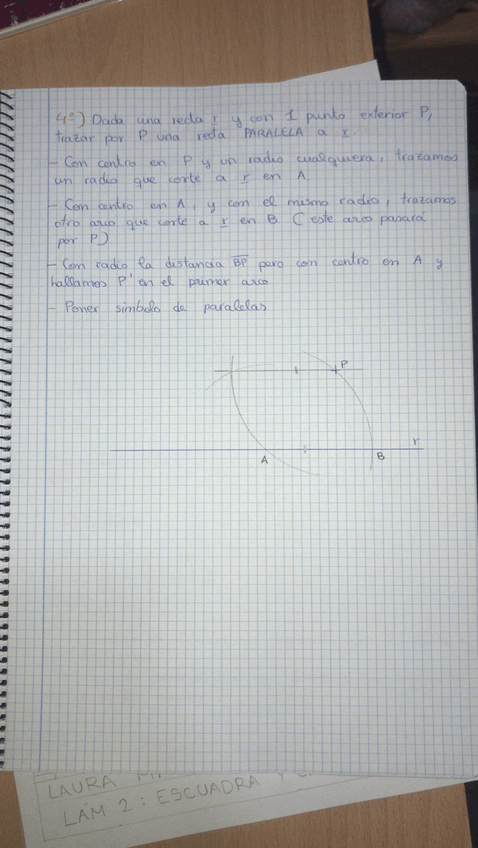 4º) Dada una recta r y con 1 punto exterior P,
trazar por P una recta PARALELA a r.
- Con centro en P y un radio cualquiera, trazamos
un radio que corte a r en A.
- Con centro en A, y con el mismo radio, trazamos
otro arco que corte a r en B (este arco pasará
por P)
- Con radio la distancia BP pero con centro en A y
hallamos P' en el primer arco
- Poner símbolo de paralelas
P
r
A
B
LAURA
LAM 2: ESCUADRA Y